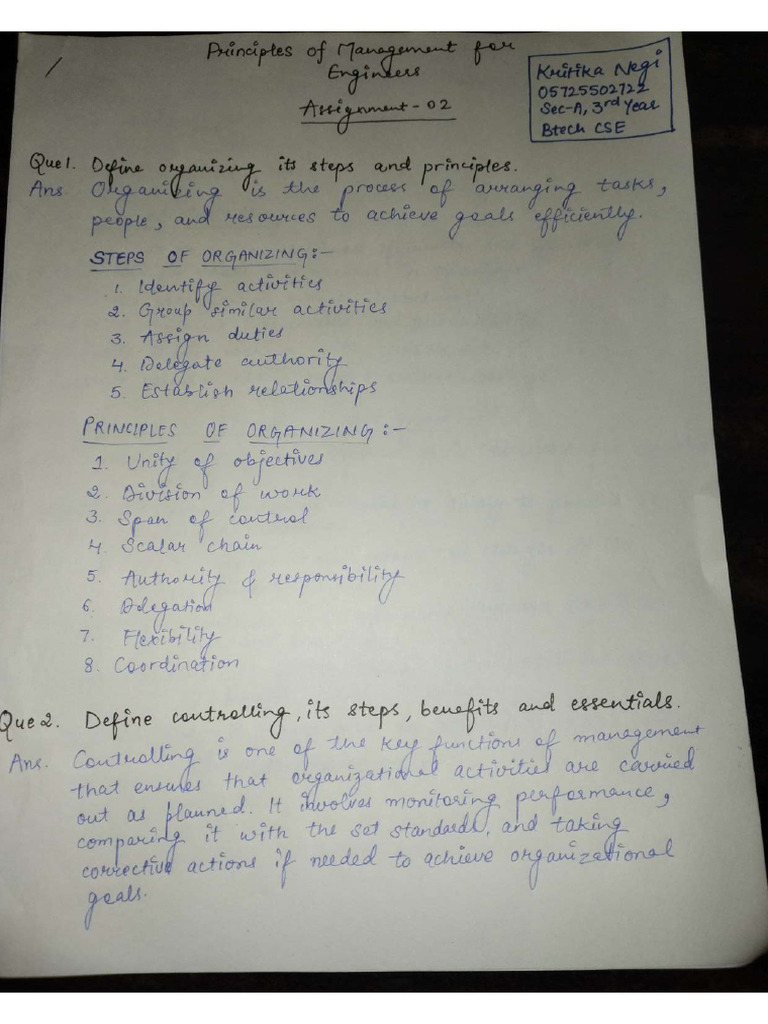 Principles of Management for
Engineers
Assignment - 02
Kritika Negi
05725502722
Sec-A, 3rd Year
Btech CSE
Que1. Define organizing its steps and principles.
Ans. Organizing is the process of arranging tasks,
people, and resources to achieve goals efficiently.
STEPS OF ORGANIZING :-
1. Identify activities
2. Group similar activities
3. Assign duties
4. Delegate authority
5. Establish relationships
PRINCIPLES OF ORGANIZING :-
1. Unity of objectives
2. Division of work
3. Span of control
4. Scalar chain
5. Authority & responsibility
6. Delegation
7. Flexibility
8. Coordination
Que2. Define controlling, its steps, benefits and essentials.
Ans. Controlling is one of the key functions of management
that ensures that organizational activities are carried
out as planned. It involves monitoring performance,
comparing it with the set standards, and taking
corrective actions if needed to achieve organizational
goals.